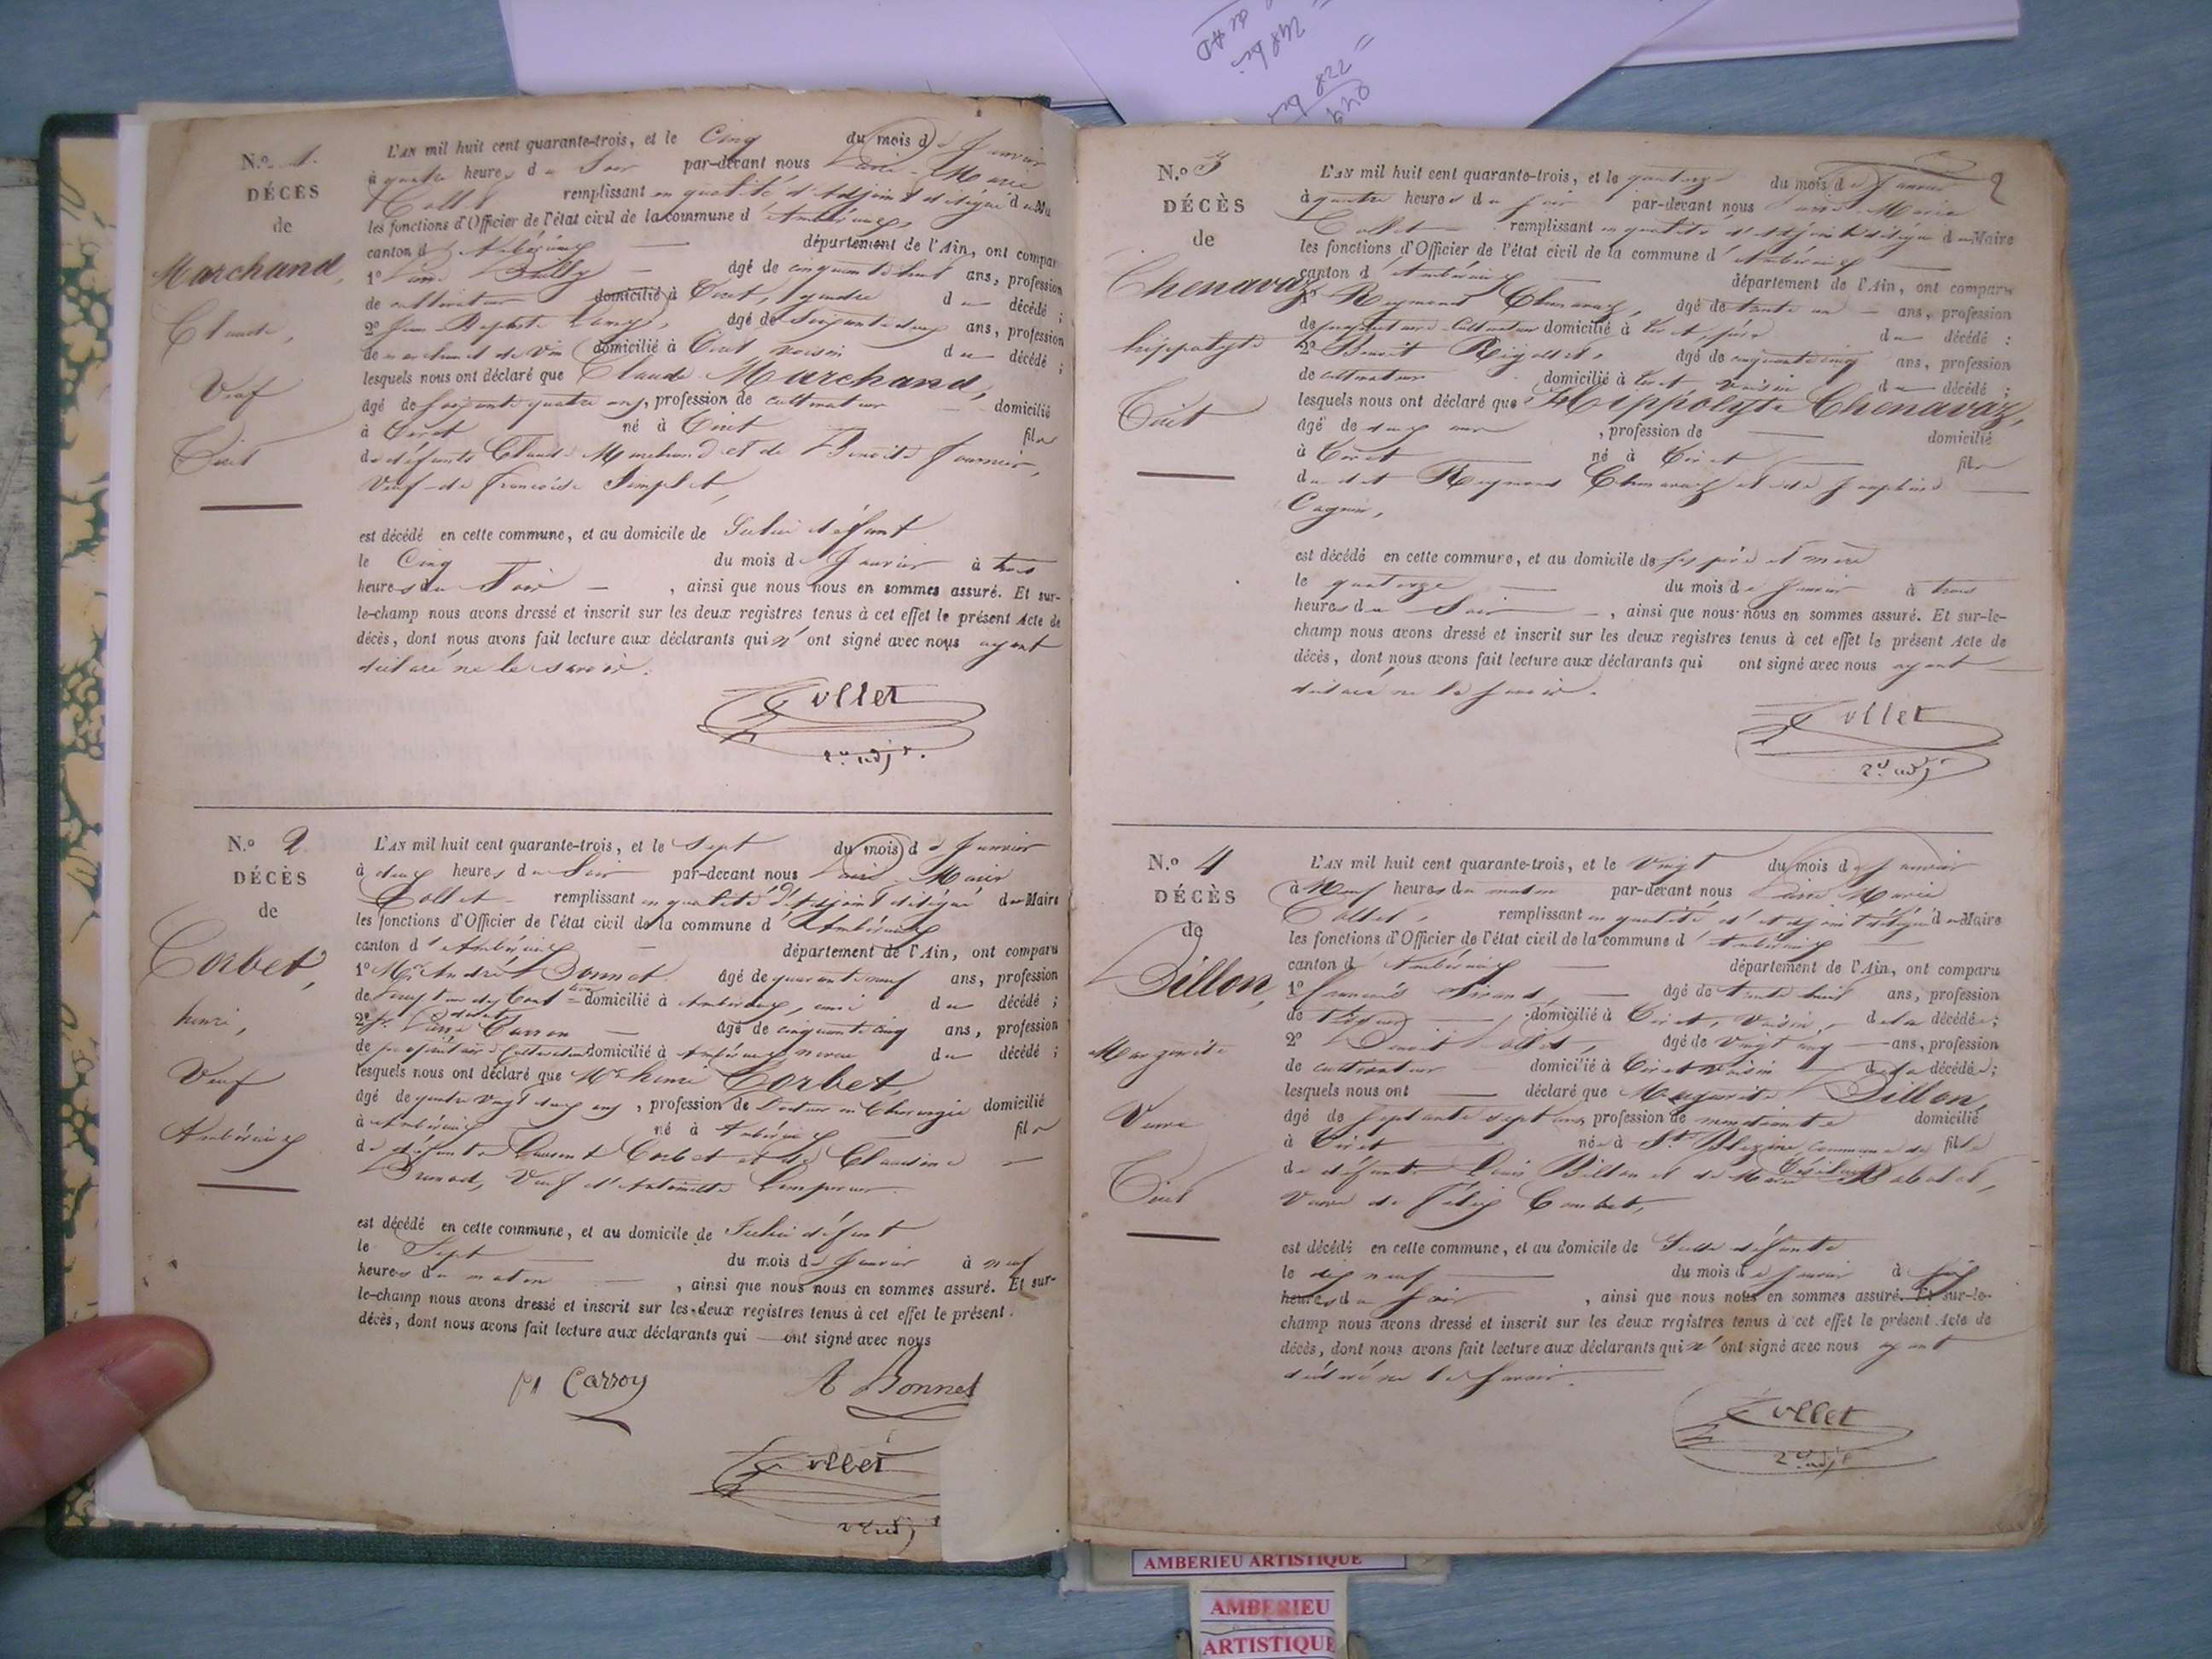 N.º 1.
DÉCÈS
de
Marchand,
Claude,
Veuf
Tiret
L'AN mil huit cent quarante-trois, et le Cinq du mois de Janvier
à quatre heures du Soir par-devant nous Marie
Collet remplissant en qualité d'Adjoint délégué du Maire
les fonctions d'Officier de l'état civil de la commune d'Ambérieux,
canton d'Ambérieux département de l'Ain, ont comparu
1º âgé de cinquante huit ans, profession
de cultivateur domicilié à Tiret, gendre du décédé ;
2º Jean-Baptiste âgé de Soixante deux ans, profession
de marchand de vin domicilié à Tiret voisin du décédé ;
lesquels nous ont déclaré que Claude Marchand,
âgé de soixante quatre ans, profession de cultivateur domicilié
à Tiret né à Tiret fils
de défunts Claude Marchand et de Benoite Fournier,
Veuf de Francoise Simplet,
est décédé en cette commune, et au domicile de Celui défunt
le Cinq du mois de Janvier à trois
heures du Soir , ainsi que nous nous en sommes assuré. Et sur-
le-champ nous avons dressé et inscrit sur les deux registres tenus à cet effet le présent Acte de
décès, dont nous avons fait lecture aux déclarants qui n'ont signé avec nous ayant
déclaré ne le savoir.
Collet
2d. adjt.
N.º 2
DÉCÈS
de
Corbet,
henri,
Veuf
Ambérieux
L'AN mil huit cent quarante-trois, et le Sept du mois de Janvier
à deux heures du Soir par-devant nous Marie
Collet remplissant en qualité d'Adjoint délégué du Maire
les fonctions d'Officier de l'état civil de la commune d'Ambérieux
canton d'Ambérieux département de l'Ain, ont comparu
1º Mr. André Bonnet âgé de quarante neuf ans, profession
de domicilié à Ambérieux, ami du décédé ;
2º Pierre Carron âgé de cinquante cinq ans, profession
de propriétaire Cultivateur domicilié à Ambérieux neveu du décédé ;
lesquels nous ont déclaré que Mr. henri Corbet,
âgé de quatre vingt deux ans, profession de Docteur en Chirurgie domicilié
à Ambérieux né à Ambérieux fils
de défunts Laurent Corbet et de Claudine
Brunet, Veuf d'Antoinette
est décédé en cette commune, et au domicile de Celui défunt
le Sept du mois de Janvier à neuf
heures du matin , ainsi que nous nous en sommes assuré. Et sur-
le-champ nous avons dressé et inscrit sur les deux registres tenus à cet effet le présent
décès, dont nous avons fait lecture aux déclarants qui ont signé avec nous
Carron A Bonnet
Collet
2d adj
N.º 3
DÉCÈS
de
Chenavaz
hippolyte
Tiret
2
L'AN mil huit cent quarante-trois, et le quatorze du mois de Janvier
à quatre heures du soir par-devant nous Marie
Collet remplissant en qualité d'Adjoint délégué du Maire
les fonctions d'Officier de l'état civil de la commune d'Ambérieux
canton d'Ambérieux département de l'Ain, ont comparu
1º Reymond Chenavaz, âgé de trente un ans, profession
de propriétaire-Cultivateur domicilié à Tiret, père du décédé ;
2º Benoit Rigollet, âgé de cinquante cinq ans, profession
de cultivateur domicilié à Tiret voisin du décédé ;
lesquels nous ont déclaré que Hippolyte Chenavaz,
âgé de deux ans , profession de domicilié
à Tiret né à Tiret fils
du dit Reymond Chenavaz et de Josephine
Cagnin,
est décédé en cette commune, et au domicile de ses père et mère
le quatorze du mois de Janvier à trois
heures du Soir , ainsi que nous nous en sommes assuré. Et sur-le-
champ nous avons dressé et inscrit sur les deux registres tenus à cet effet le présent Acte de
décès, dont nous avons fait lecture aux déclarants qui ont signé avec nous ayant
déclaré ne le savoir.
Collet
2d adj
N.º 4
DÉCÈS
de
Billon,
Marguerite
Veuve
Tiret
L'AN mil huit cent quarante-trois, et le Vingt du mois de Janvier
à Neuf heures du matin par-devant nous Marie
Collet, remplissant en qualité d'Adjoint délégué du Maire
les fonctions d'Officier de l'état civil de la commune d'Ambérieux
canton d'Ambérieux département de l'Ain, ont comparu
1º francois Sirand, âgé de trente huit ans, profession
de domicilié à Tiret, Voisin, de la décédée ;
2º Benoit Collet, âgé de Vingt neuf ans, profession
de cultivateur domicilié à Tiret voisin de la décédée ;
lesquels nous ont déclaré que Marguerite Billon,
âgé de septante sept ans, profession de mendiante domicilié
à Tiret née à St. commune de fille
de défunts Louis Billon et de Marie
Veuve de Félix Combet,
est décédé en cette commune, et au domicile de Celle défunte
le dix neuf du mois de Janvier à
heures du soir , ainsi que nous nous en sommes assuré. Et sur-le-
champ nous avons dressé et inscrit sur les deux registres tenus à cet effet le présent Acte de
décès, dont nous avons fait lecture aux déclarants qui n'ont signé avec nous ayant
déclaré ne le savoir.
Collet
2d adjt
AMBERIEU ARTISTIQUE
AMBERIEU
ARTISTIQUE